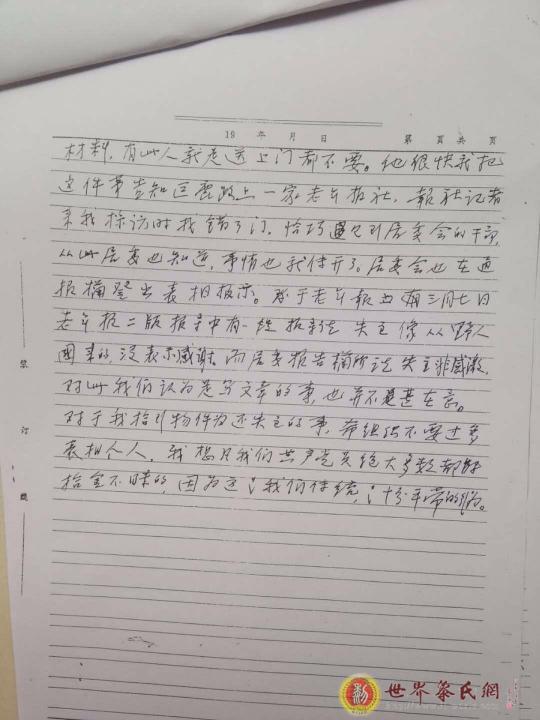 19 年 月 日 第 页共 页
材料,有此人就是送上门都不要。他很快我把
这件事告知巨鹿路上一家老年报社,报社记者
来我采访时找错了门,恰巧遇见到居委会的干部,
从此居委也知道,事情也就传开了。居委会也在通
报栏登出表扬报示。关于老年报 有三月七日
老年报二版报导中有一段报 说 失主像从 路人
回来的,没表示感谢,而居委报告栏所说失主非感激,
对此我们认为是写文章的事,也并不 在意。
对于我拾到物件归还失主的事,希组织不要过多
表扬个人,我想凡我们共产党员绝大多数都能
拾金不昧的,因为这是我们传统,是十分平常的
装
订
线
世界蔡氏網